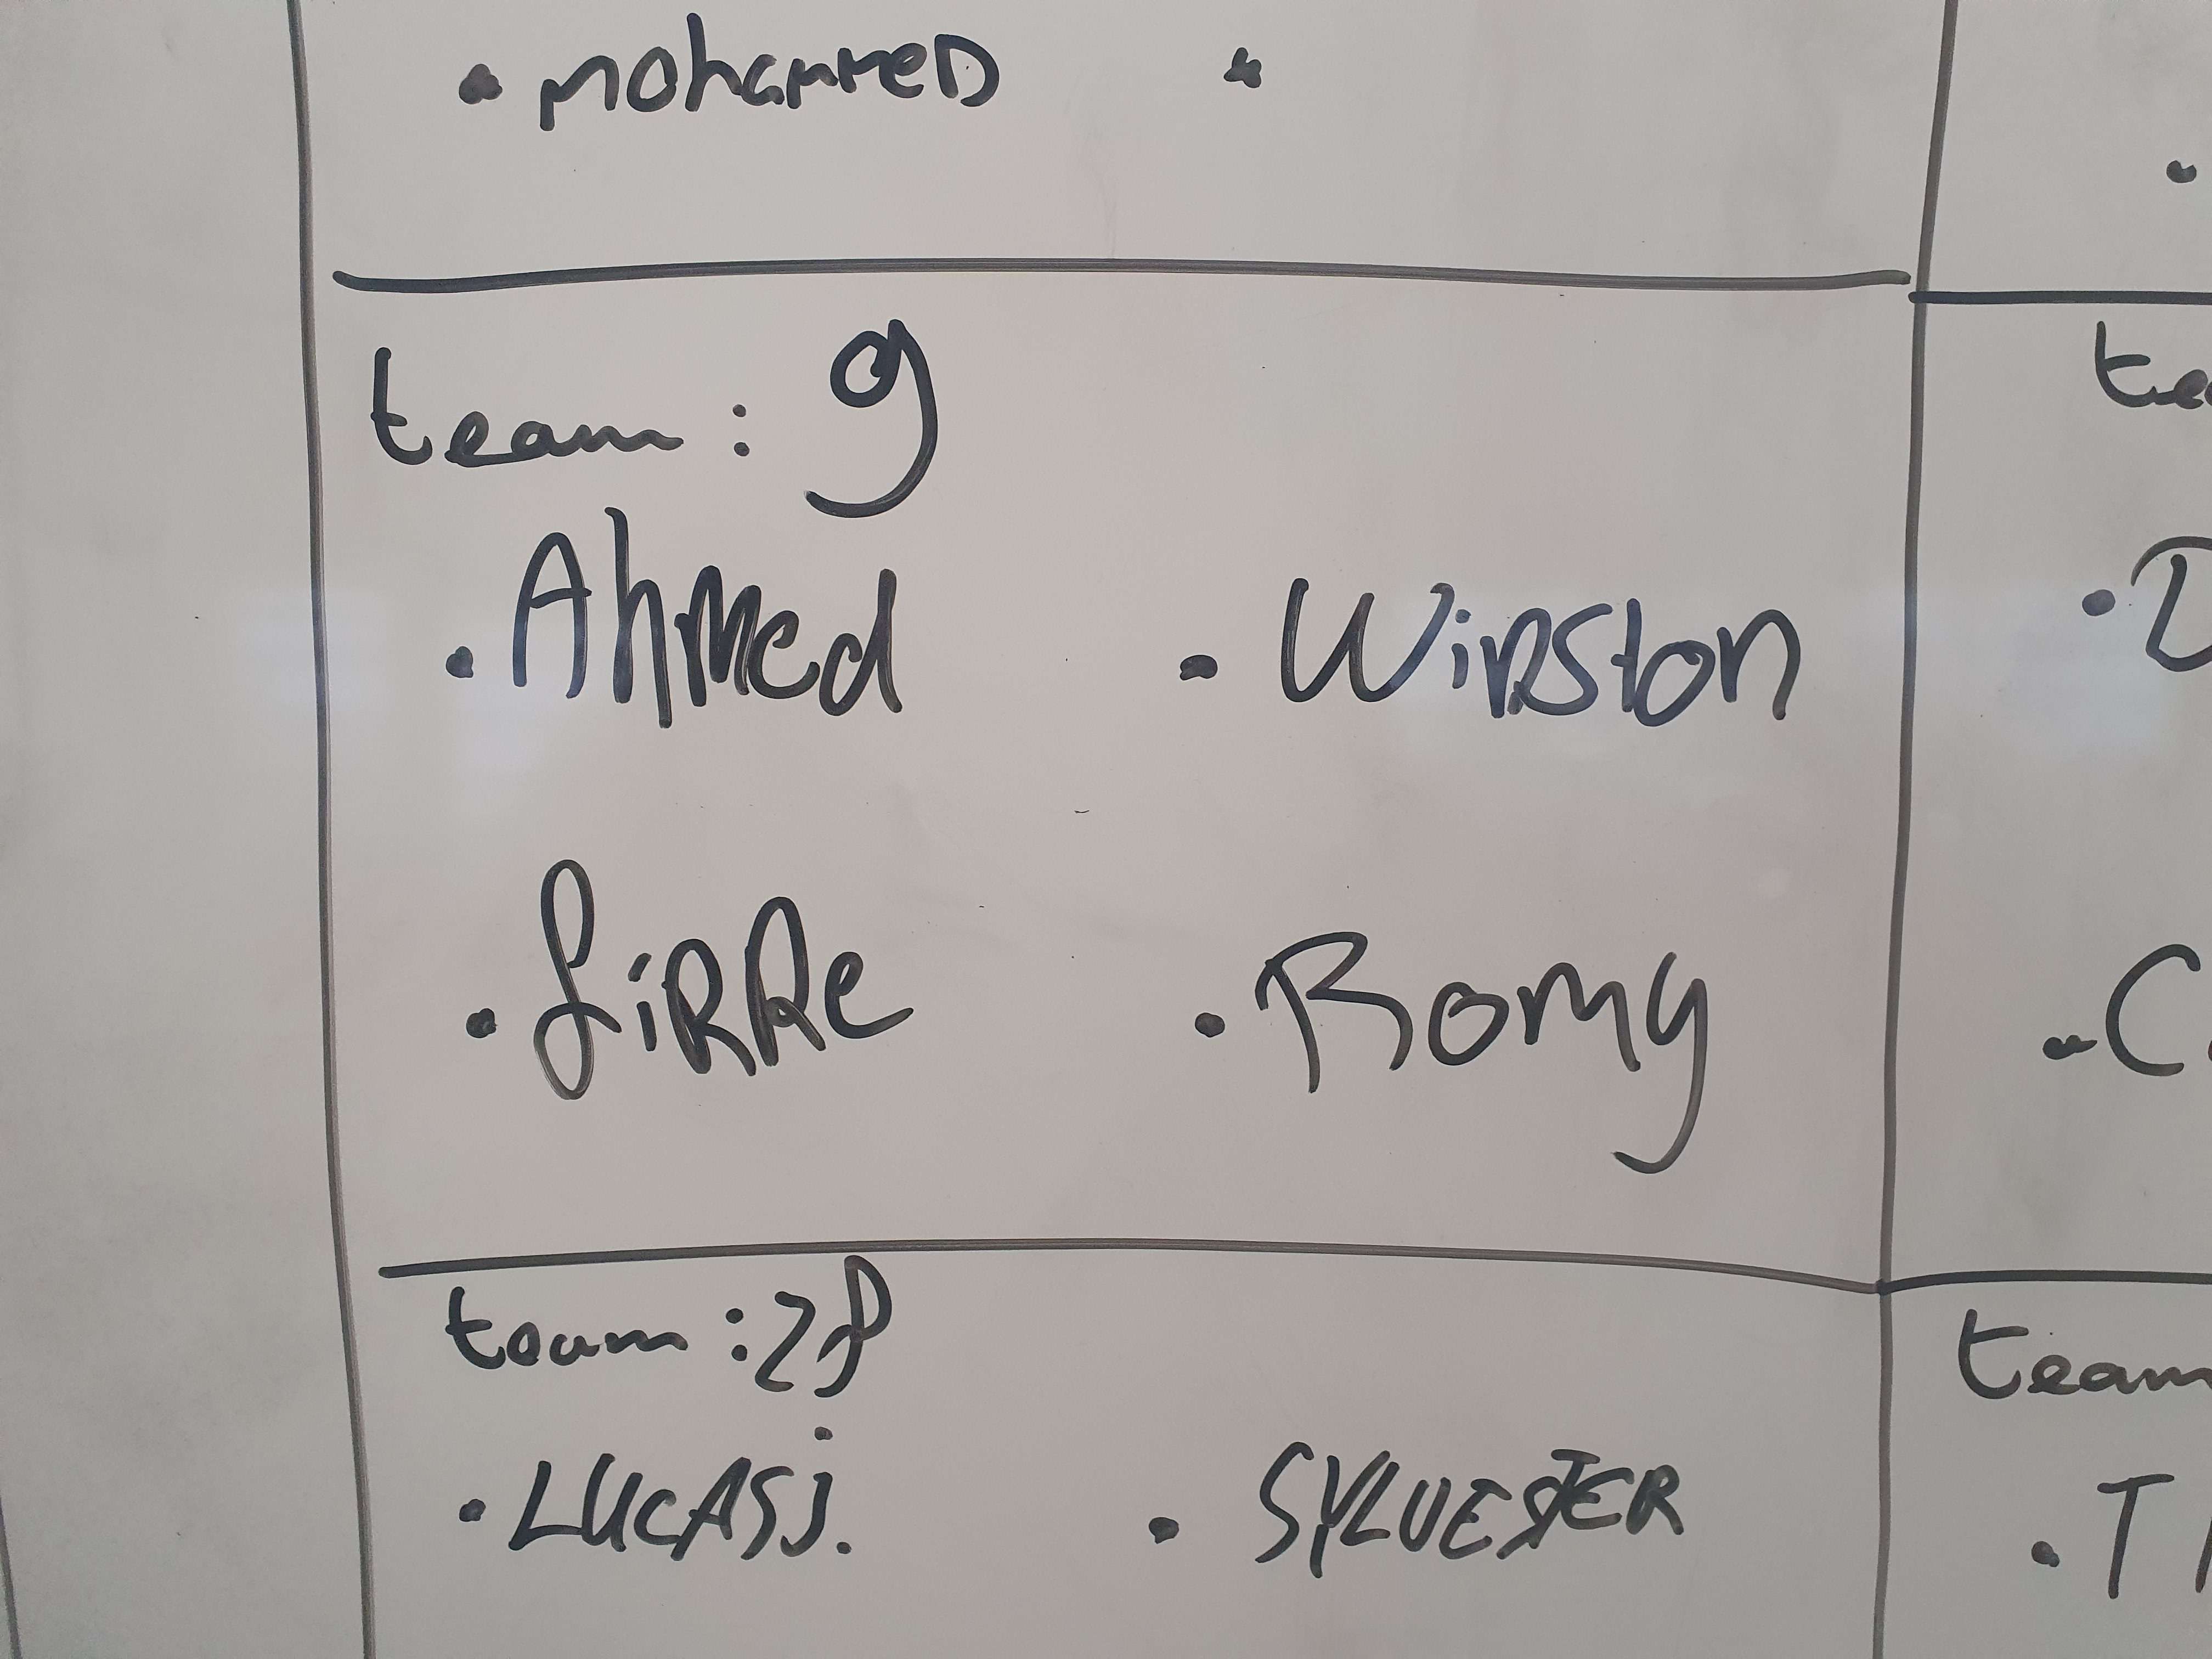 • MOHAMMED •
team: 9
• Ahmed • Winston
• Romy
team:
• LUCAS J. • SYLVESTER
team